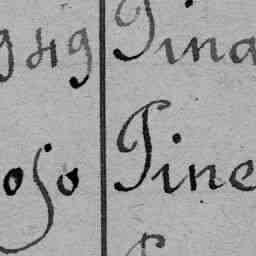 949 Pina
050 Pine